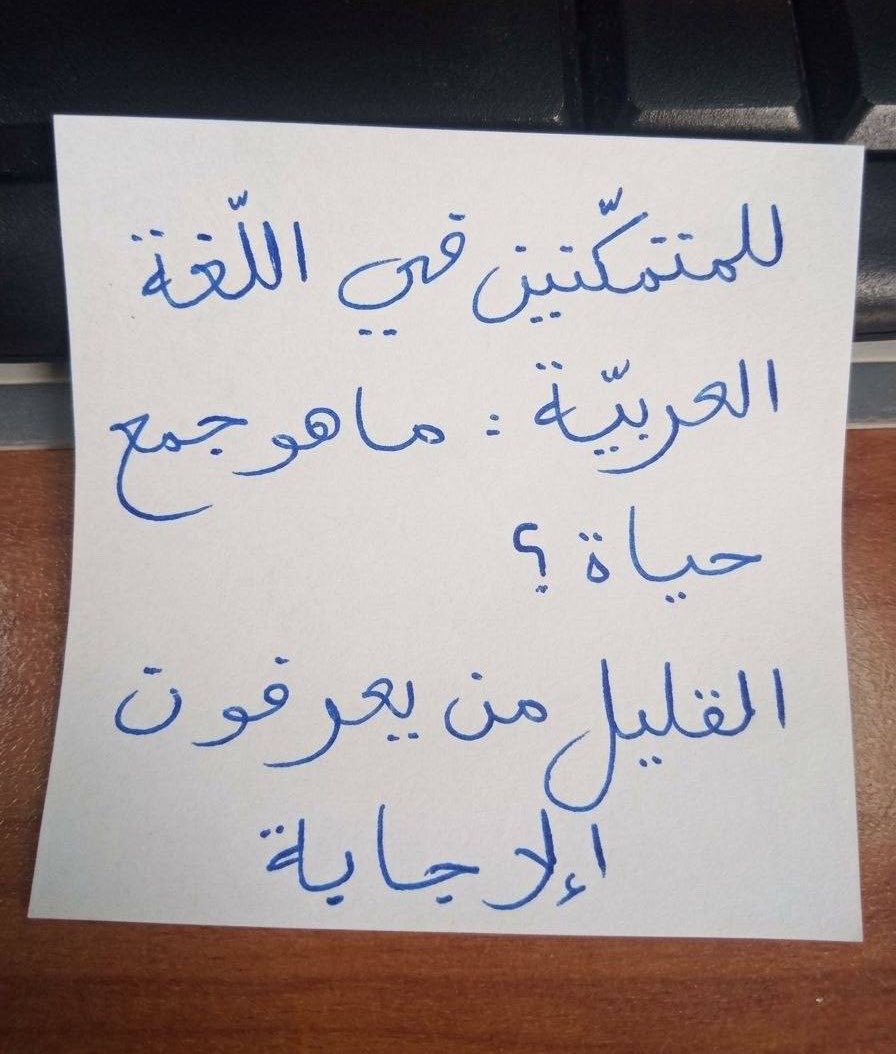 للمتمكّنين في اللّغة
العربيّة : ما هو جمع
حياة ؟
القليل من يعرفون
الإجابة